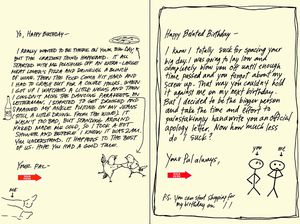 Yo, Happy Birthday-
I really wanted to be there on your big day
but the craziest thing happened. It all
started with me polishing off an extra-large
meat lovers pizza and devouring a bowl
of wine. Then the food coma hit hard and
I had to crash out for a couple hours. When
I got up I watched a little video and then
I couldn't miss the dancing parakeets on
Letterman. I started to get dressed and
imagined my ankle putting on my jeans
(still a little drunk from the wine). It
wasn't too bad, but standing around
naked made me cold, so I took a hot
shower and before I knew it was 2 AM.
You understand. It happens to the best
of us. Hope you had a good time.
Your Pal-
Happy Belated Birthday-
I know I totally suck for spacing your
big day. I was going to lay low and
completely blow you off until enough
time passed and you forgot about my
screw up. That way you couldn't hold
it against me on my next birthday.
But I decided to be the bigger person
and take the time and effort to
painstakingly handwrite you an official
apology letter. Now how much less
do I suck?
Your Pal always,
me
you
me
P.S. You can start shopping for
my birthday now!